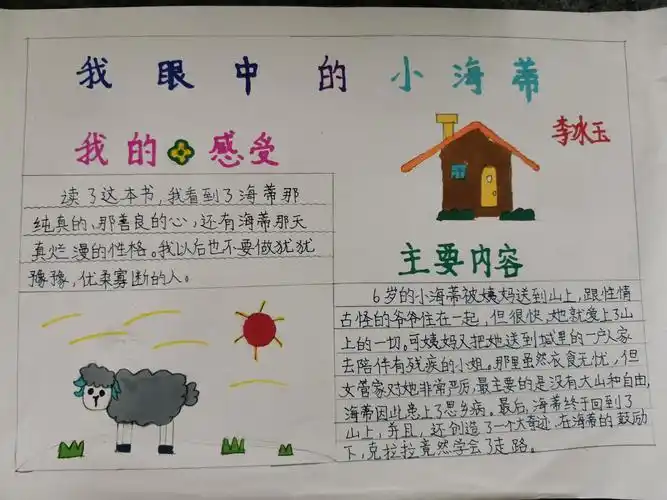 我眼中的小海蒂
李冰玉
我的感受
读了这本书,我看到了海蒂那
纯真的、那善良的心,还有海蒂那天
真烂漫的性格。我以后也不要做犹犹
豫豫,优柔寡断的人。
主要内容
6岁的小海蒂被姨妈送到山上,跟性情
古怪的爷爷住在一起,但很快,她就爱上了山
上的一切。可姨妈又把她送到城里的一户人家
去陪伴有残疾的小姐。那里虽然衣食无忧,但
女管家对她非常严厉,最主要的是没有大山和自由,
海蒂因此患上了思乡病。最后,海蒂终于回到了
山上,并且,还创造了一个大奇迹,在海蒂的鼓励
下,克拉拉竟然学会了走路。